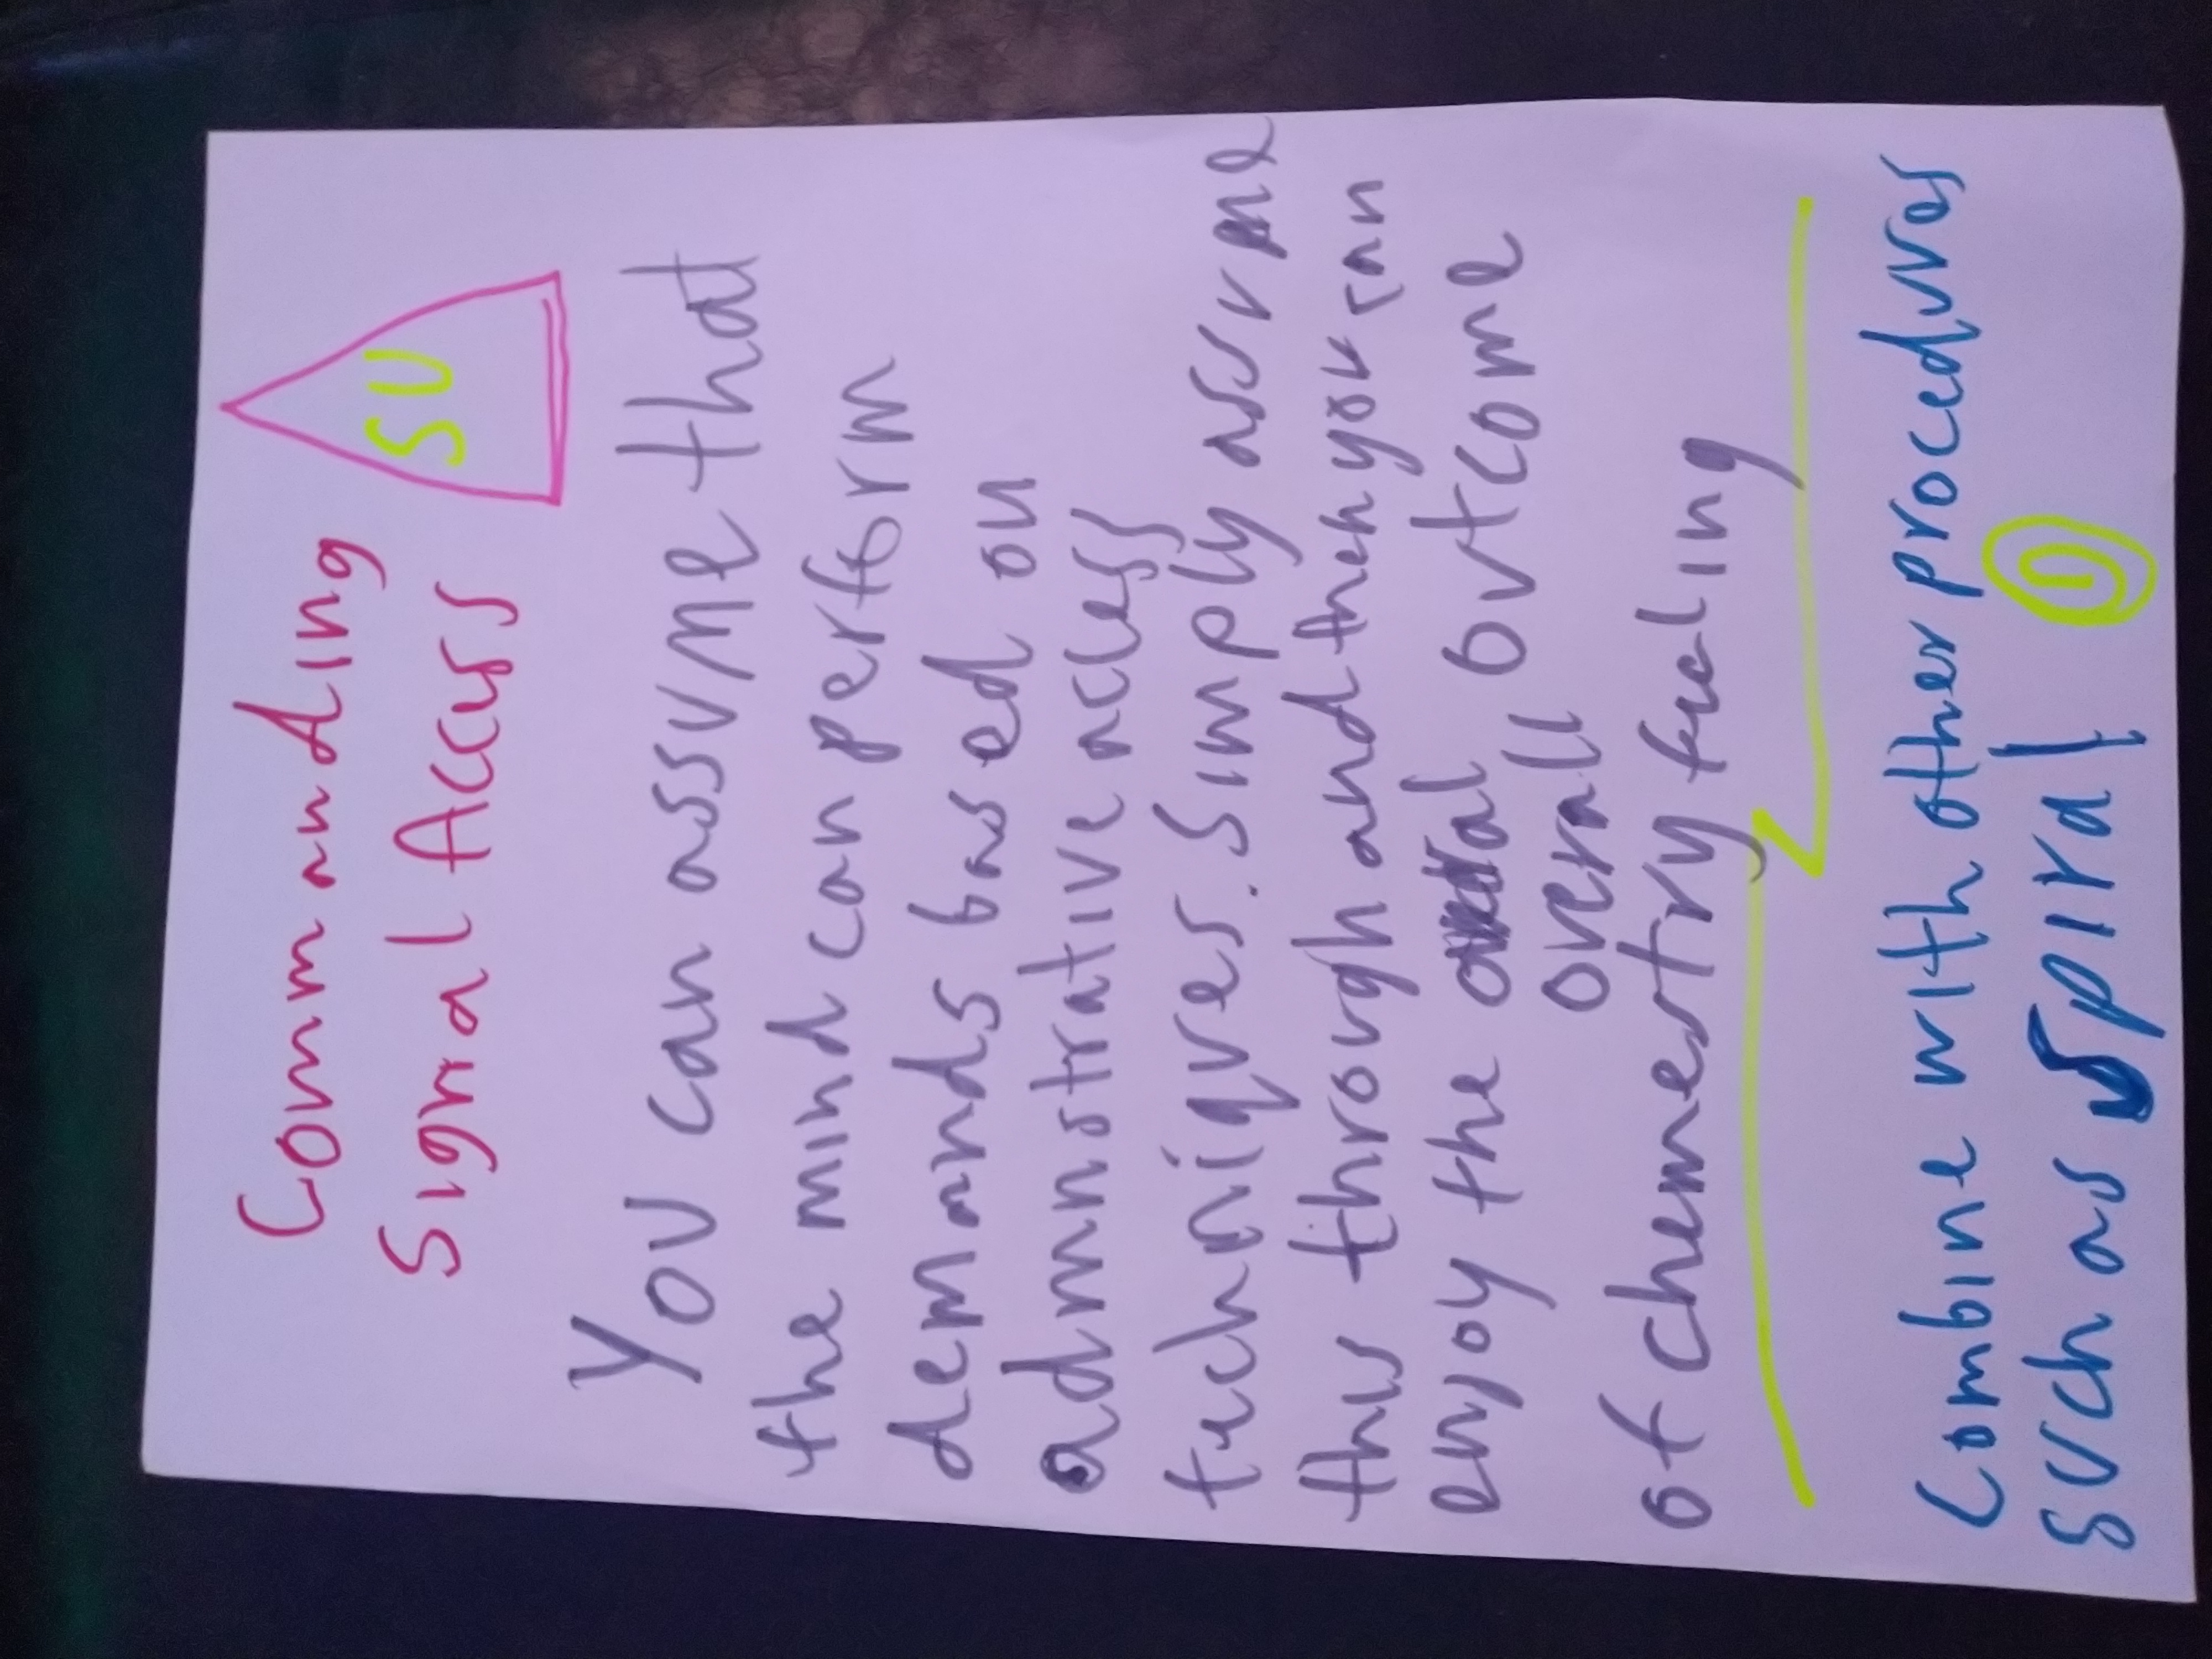 Commanding
Signal Access
SU
You can assume that
the mind can perform
demands based on
admnstrative access
techniques. Simply assume
this through and then you can
enjoy the overall outcome
overall
of chemestry feeling
Combine with other procedures
such as spiral